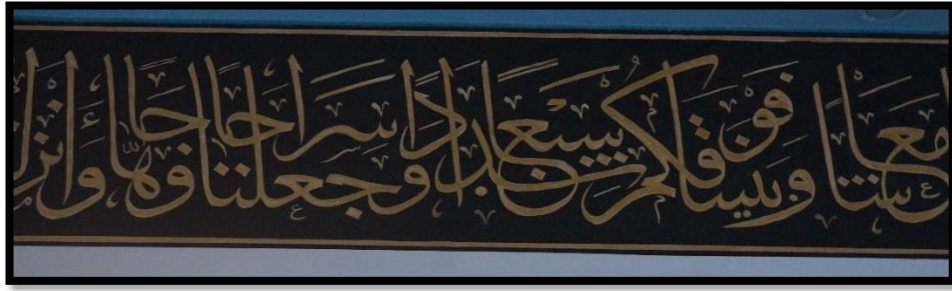 معاشا وبنينا فوقكم سبعا شدادا وجعلنا سراجا وهاجا وأنزل